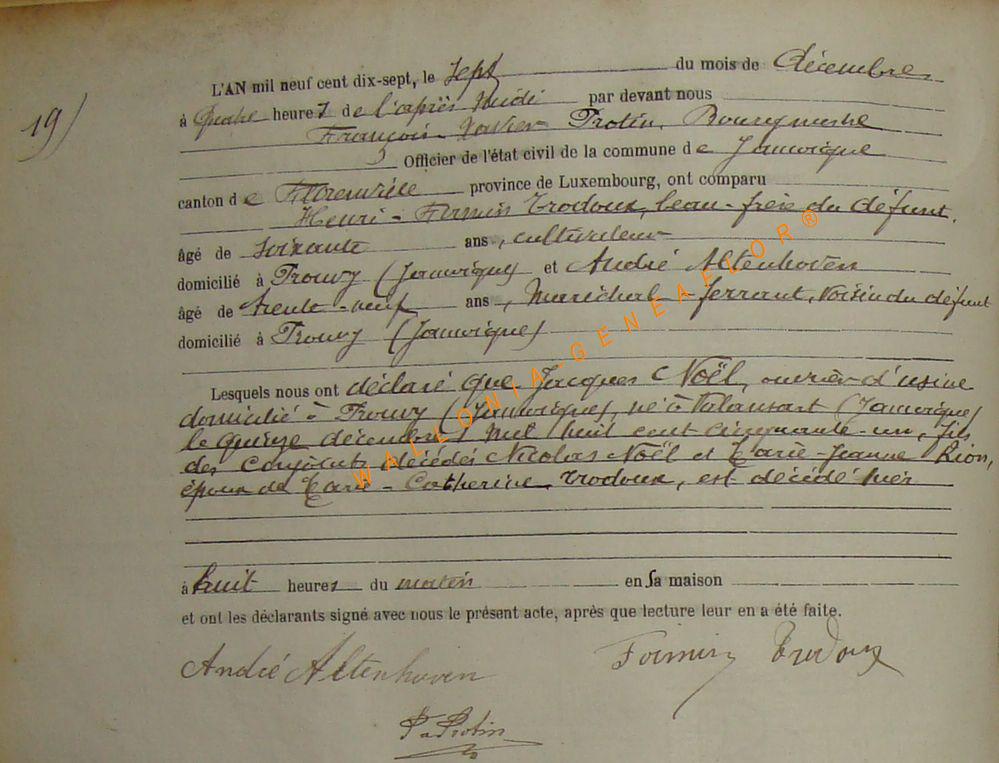 19)
L'AN mil neuf cent dix-sept, le sept du mois de décembre
à quatre heures de l'après midi par devant nous
François-Xavier Protin, Bourgmestre
Officier de l'état civil de la commune de Jamoigne
canton de Florenville province de Luxembourg, ont comparu
Henri-Firmin Trodoux, beau-frère du défunt,
âgé de soixante ans, cultivateur
domicilié à Prouvy (Jamoigne) et André Altenhoven
âgé de trente-neuf ans, Maréchal-ferrant, voisin du défunt
domicilié à Prouvy (Jamoigne)
Lesquels nous ont déclaré que Jacques Noël, ouvrier d'usine
domicilié à Prouvy (Jamoigne), né à Valansart (Jamoigne)
le quinze décembre mil huit cent cinquante-un, fils
des conjoints décédés Nicolas Noël et Marie-Jeanne Rion,
époux de Marie-Catherine Trodoux, est décédé hier
à huit heures du matin en sa maison
et ont les déclarants signé avec nous le présent acte, après que lecture leur en a été faite.
André Altenhoven Firmin Trodoux
Protin
WALLONIA-GENEAELOR®